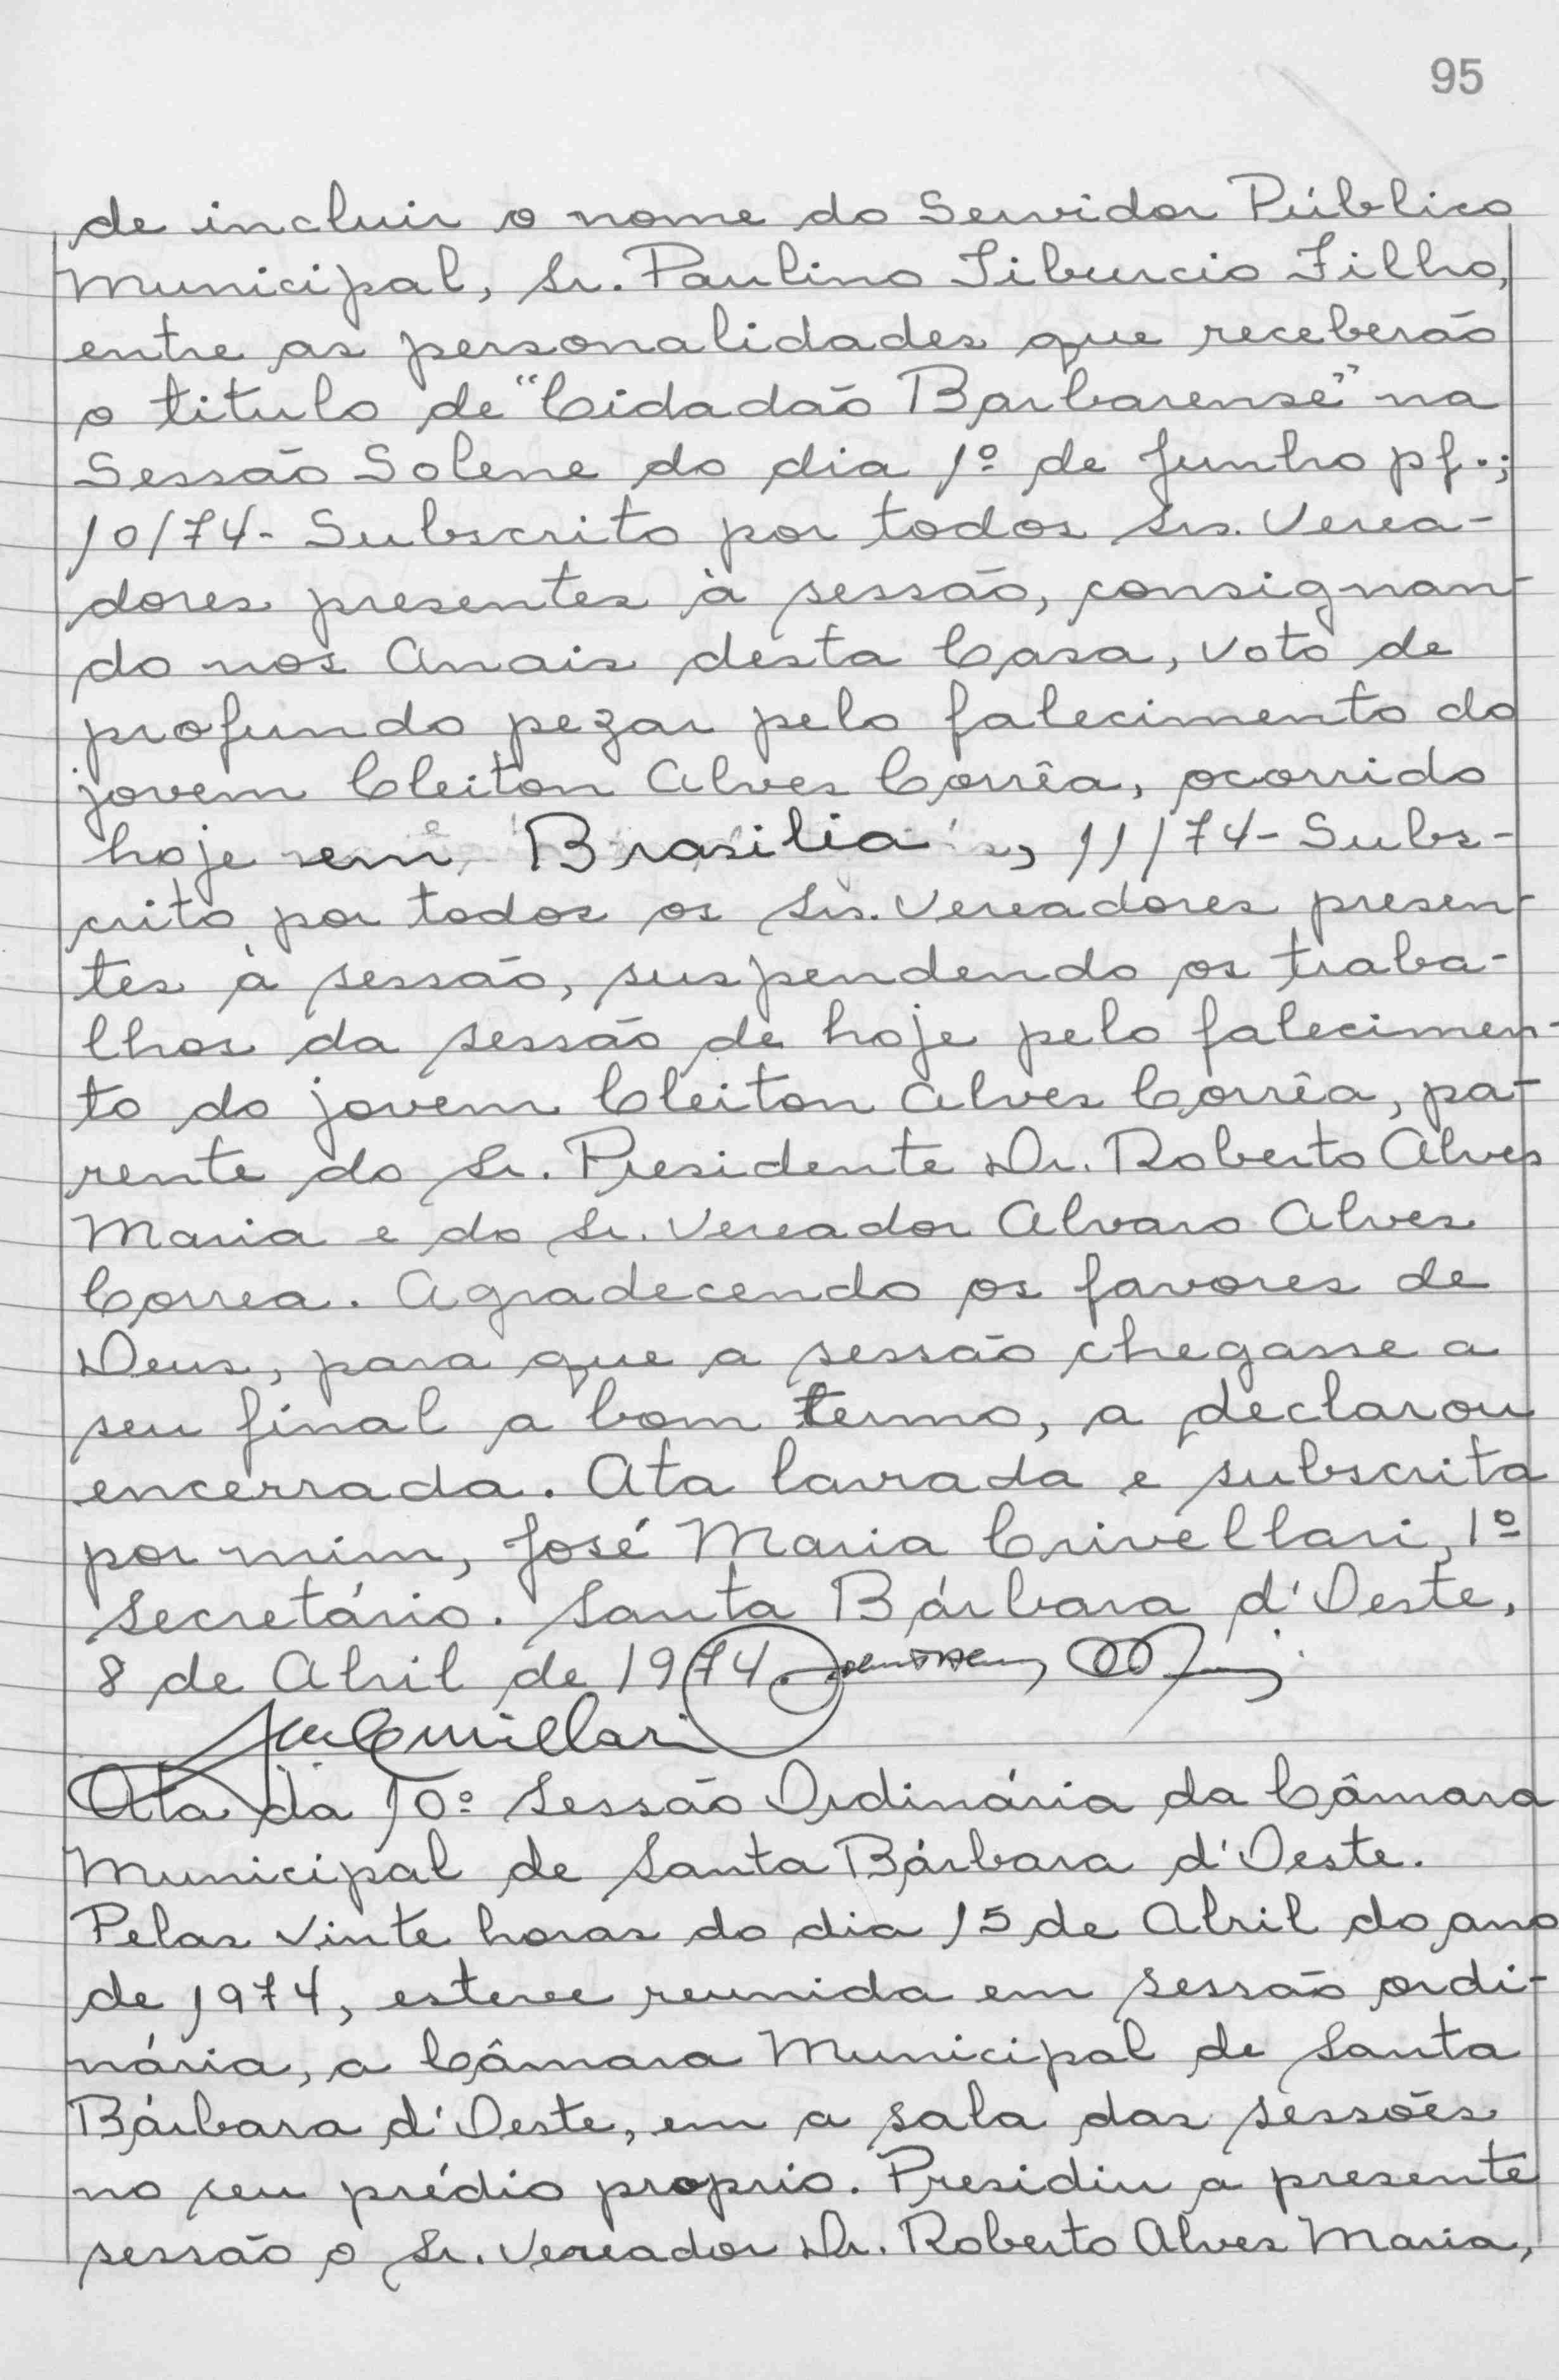 95
de incluir o nome do Servidor Público
Municipal, Sr. Paulino Tiburcio Filho,
entre as personalidades que receberão
o titulo de "Cidadão Barbarense" na
Sessão Solene do dia 1º de Junho pf.;
10/74- Subscrito por todos Srs. Verea-
dores presentes à sessão, consignan-
do nos Anais desta Casa, voto de
profundo pezar pelo falecimento do
jovem Cleiton Alves Corrêa, ocorrido
hoje em Brasilia, 11/74- Subs-
crito por todos os Srs. Vereadores presen-
tes à sessão, suspendendo os traba-
lhos da sessão de hoje pelo falecimen-
to do jovem Cleiton Alves Corrêa, pa-
rente do Sr. Presidente Dr. Roberto Alves
Maria e do Sr. Vereador Alvaro Alves
Correa. Agradecendo os favores de
Deus, para que a sessão chegasse a
seu final a bom termo, a declarou
encerrada. Ata lavrada e subscrita
por mim, José Maria Crivellari, 1º
secretário. Santa Bárbara d'Oeste,
8 de Abril de 1974.
Ata da 10º Sessão Ordinária da Câmara
Municipal de Santa Bárbara d'Oeste.
Pelas vinte horas do dia 15 de Abril do ano
de 1974, esteve reunida em sessão ordi-
nária, a Câmara Municipal de Santa
Bárbara d'Oeste, em a sala das sessões
no seu prédio proprio. Presidiu a presente
sessão o Sr. Vereador Dr. Roberto Alves Maria,